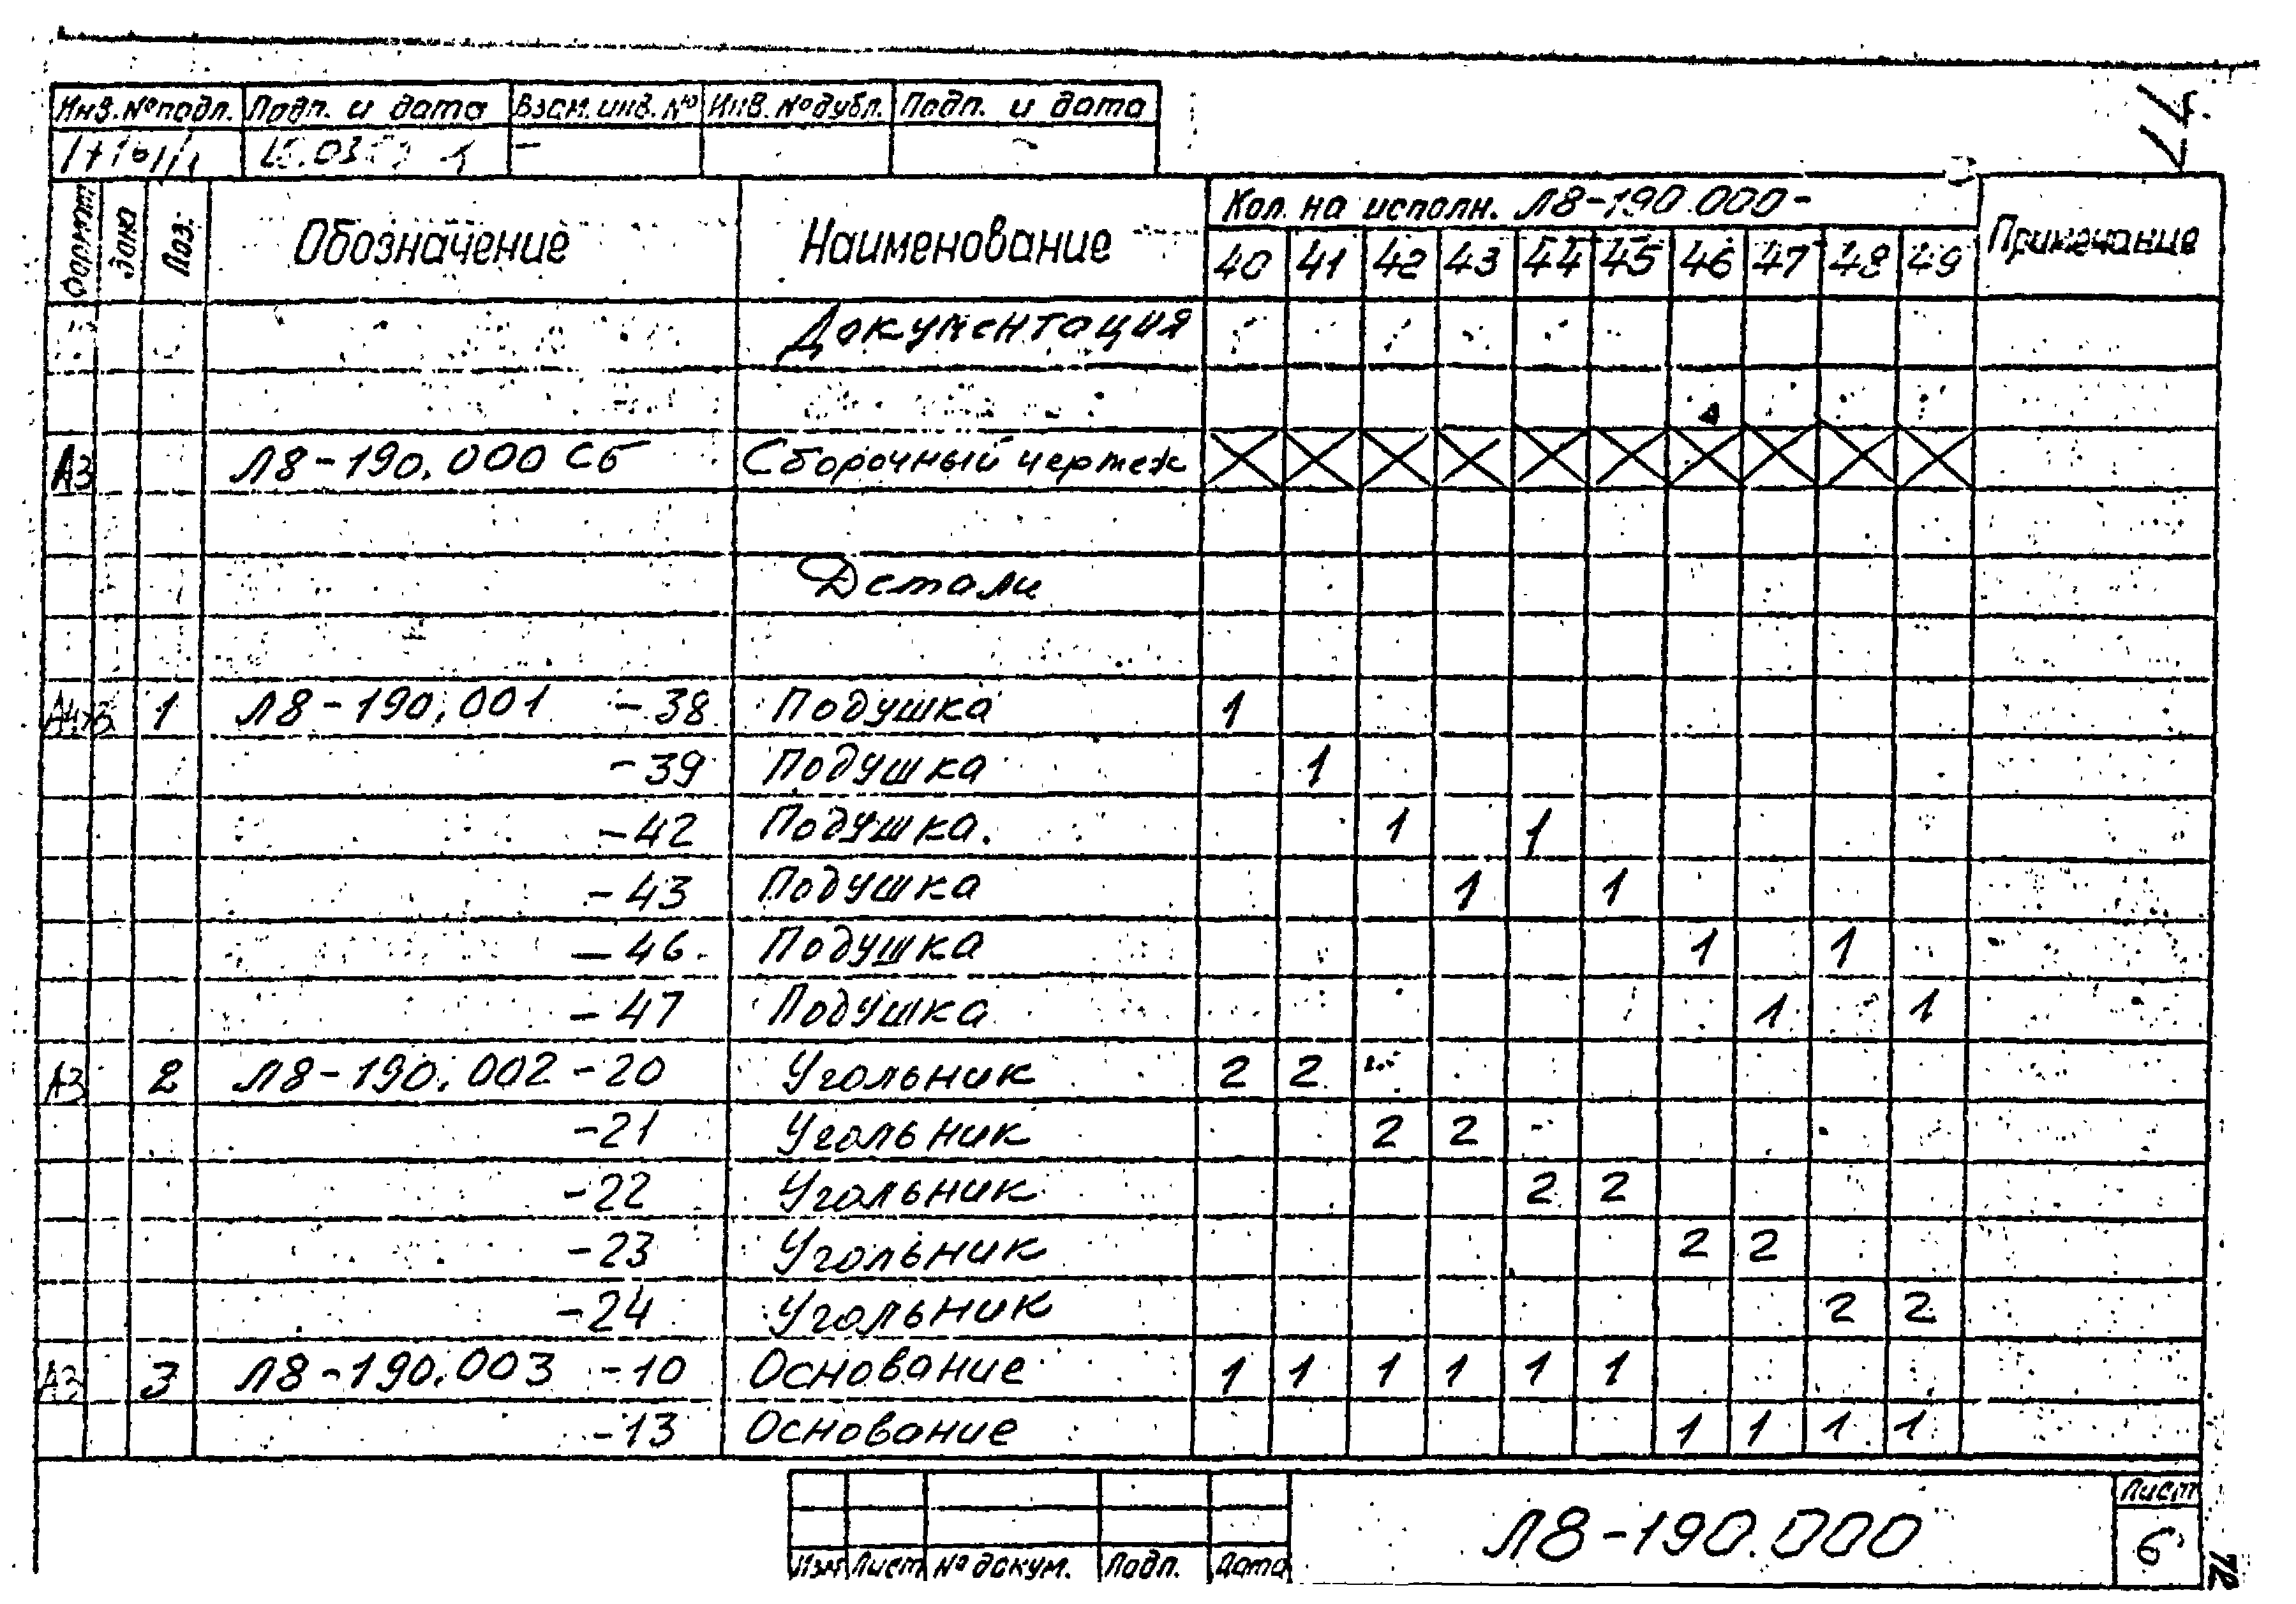 Инв. № подл. Подп. и дата Взам. инв. № Инв. № дубл. Подп. и дата
74
Формат Зона Поз. Обозначение Наименование Кол. на исполн. Л8-190.000- Примечание
40 41 42 43 44 45 46 47 48 49
Документация
А3 Л8-190.000 Сб Сборочный чертеж
Детали
А4х3 1 Л8-190.001 -38 Подушка 1
-39 Подушка 1
-42 Подушка. 1 1
-43 Подушка 1 1
-46 Подушка 1 1
-47 Подушка 1 1
А3 2 Л8-190.002 -20 Угольник 2 2
-21 Угольник 2 2
-22 Угольник 2 2
-23 Угольник 2 2
-24 Угольник 2 2
А3 3 Л8-190.003 -10 Основание 1 1 1 1 1 1
-13 Основание 1 1 1 1
Изм Лист № докум. Подп. Дата Л8-190.000 Лист
6
72